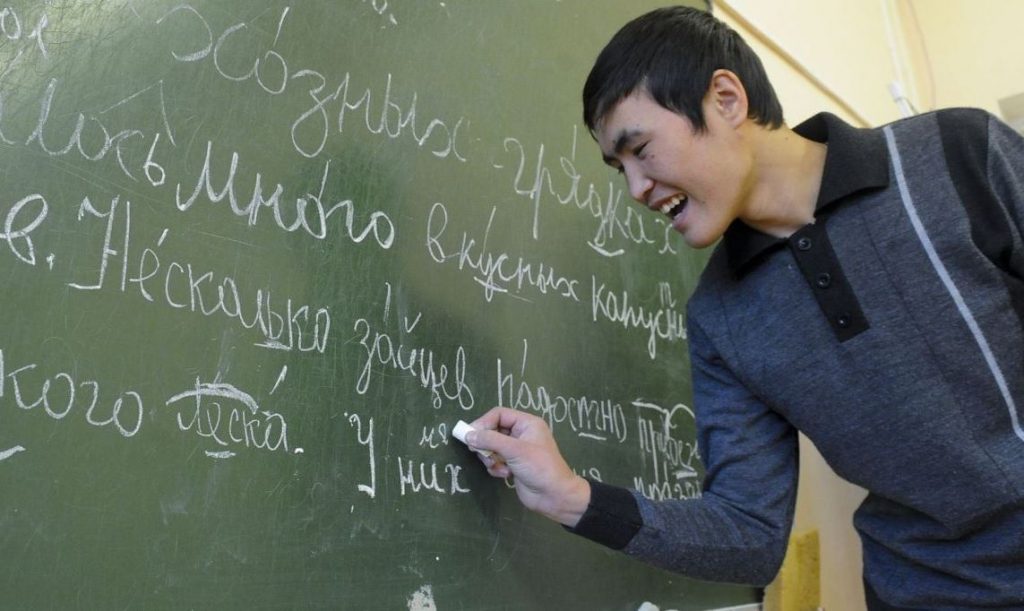 хо́зных гря́дках
лось мно́го вку́сных капустн
в. Не́сколько за́йцев ра́достно
кого леска́. У них